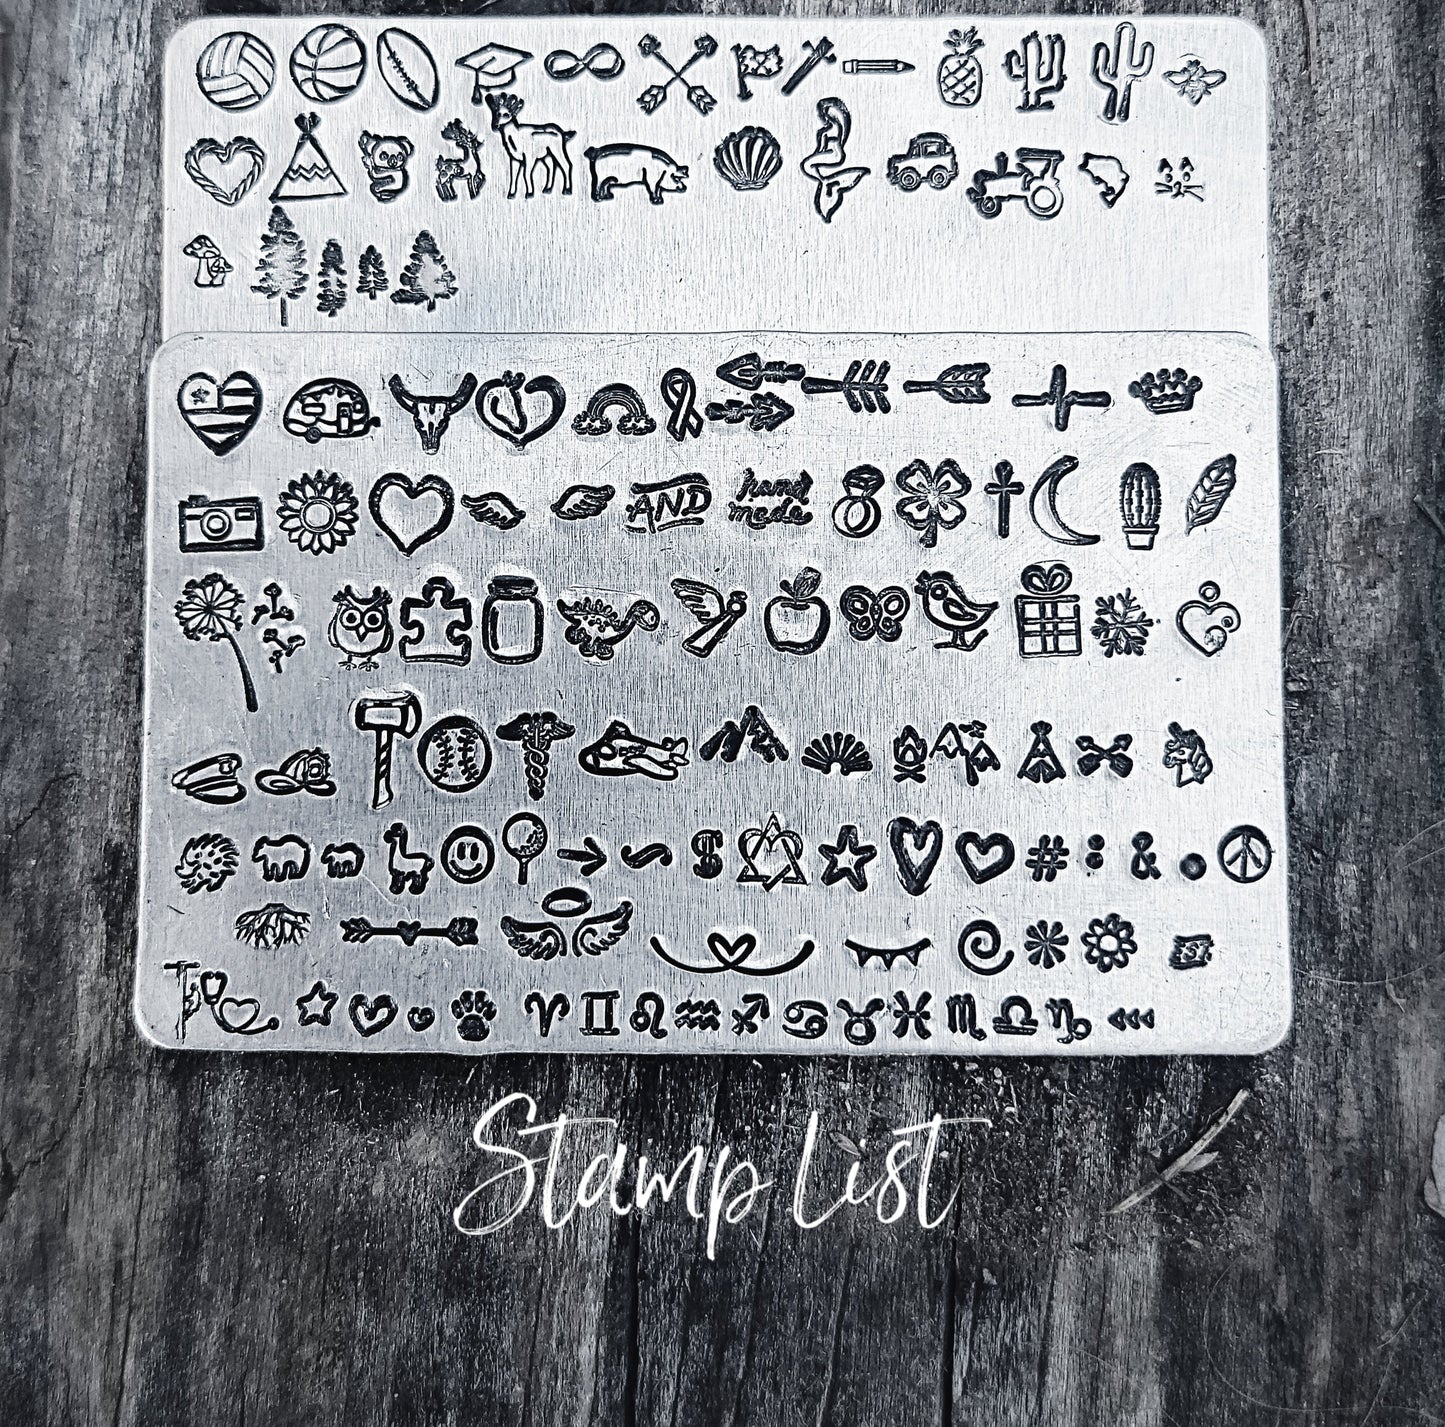 AND
hand
made
$
#
:
&
.
♈ ♊ ♌ ♒ ♐ ♋ ♉ ♓ ♏ ♎ ♑
Stamp List